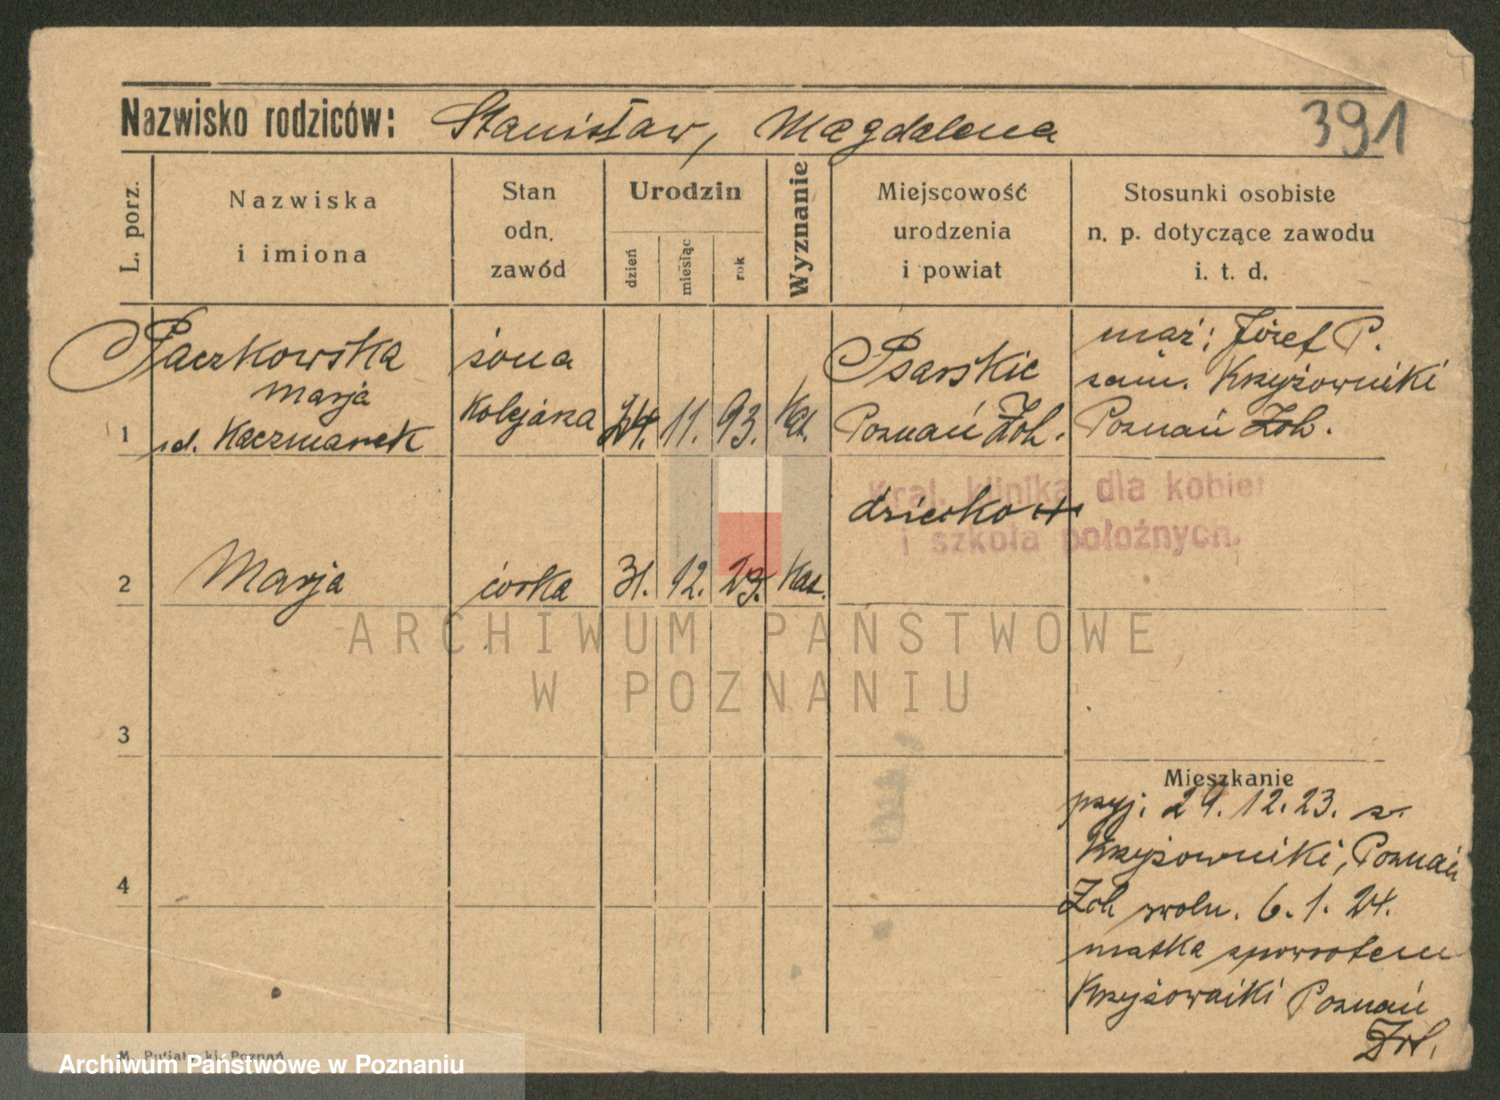 Nazwisko rodziców: Stanisław, Magdalena
391
L. porz.
Nazwiska
i imiona
Stan
odn.
zawód
Urodzin
dzień
miesiąc
rok
Wyznanie
Miejscowość
urodzenia
i powiat
Stosunki osobiste
n. p. dotyczące zawodu
i. t. d.
1
Paczkowska
Marja
d. Kaczmarek
żona
Kolejarza
24. 11. 93. Kat.
Psarskie
Poznań Zch.
mąż: Józef P.
zam. Krzyżowniki
Poznań Zch.
Kraj. klinika dla kobiet
i szkoła położnych.
2
Marja
córka
31. 12. 23. Kat.
dziecko +
3
4
Mieszkanie
przyj. 29. 12. 23. z.
Krzyżowniki, Poznań
Zch zwoln. 6. 1. 24.
matka spowrotem
Krzyżowniki Poznań
Zch.
ARCHIWUM PAŃSTWOWE
W POZNANIU
Poznań
Archiwum Państwowe w Poznaniu